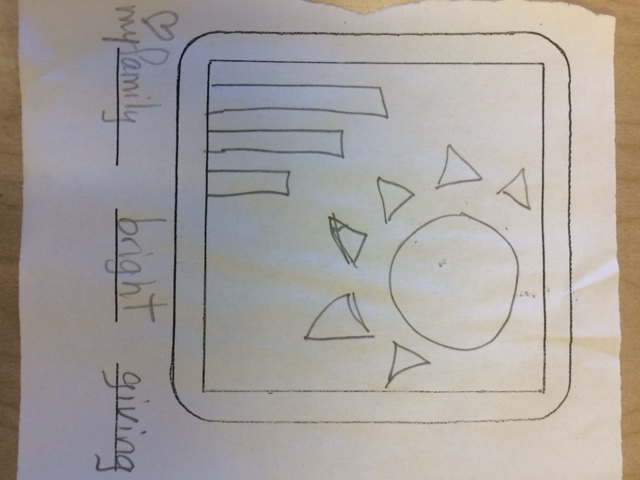 my family bright giving